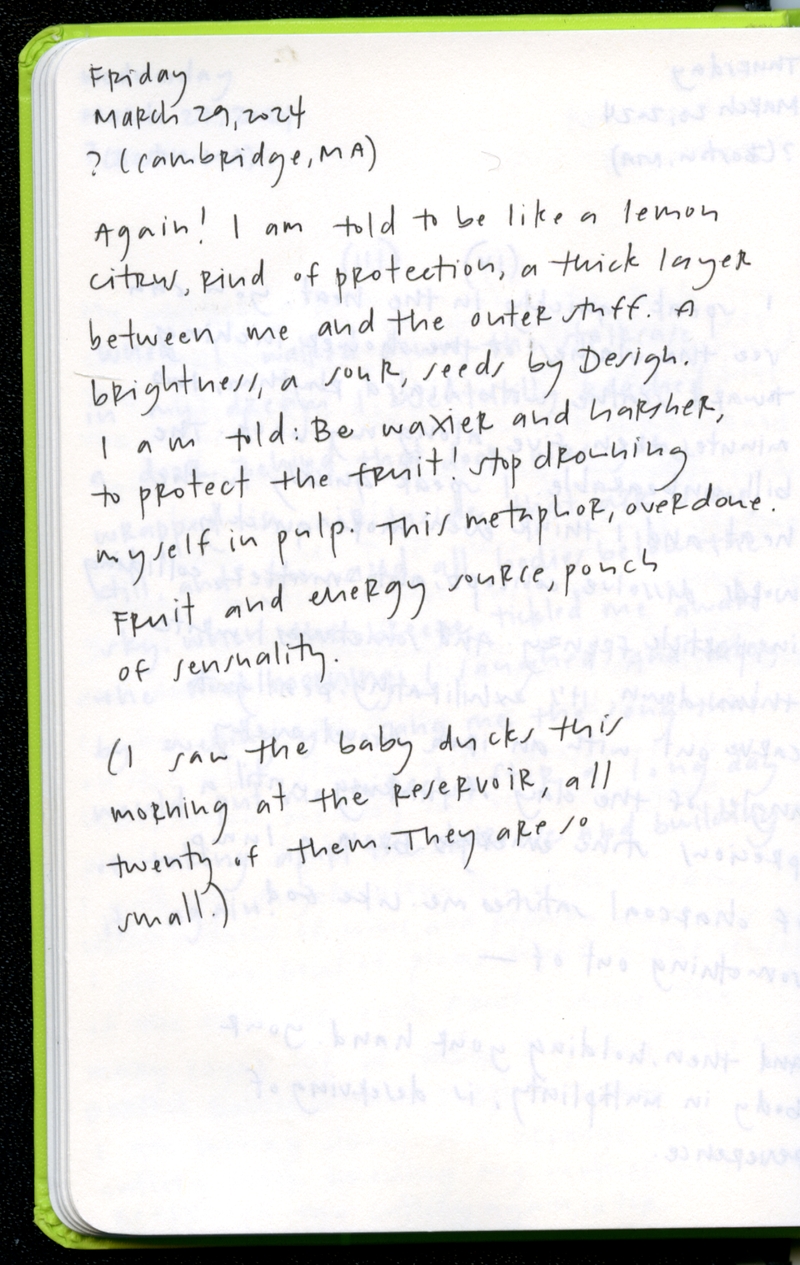 Friday
March 29, 2024
? (Cambridge, MA)
Again! I am told to be like a lemon
citrus, rind of protection, a thick layer
between me and the outer stuff. A
brightness, a sour, seeds by Design.
I am told: Be waxier and harsher,
to protect the fruit! Stop drowning
myself in pulp. This metaphor, overdone.
Fruit and energy source, pouch
of sensuality.
(I saw the baby ducks this
morning at the Reservoir, all
twenty of them. They are so
small.)